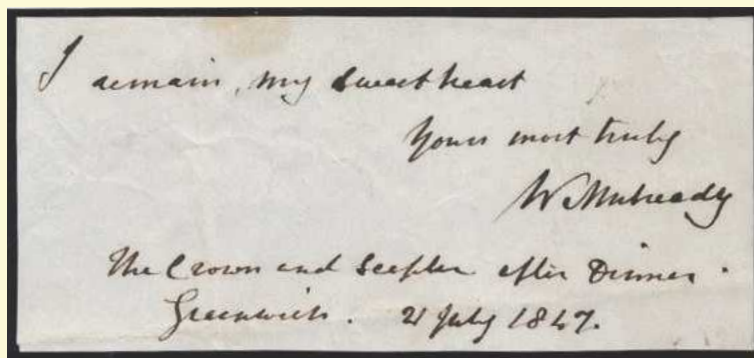 I remain, my Sweetheart
Yours most truly
W. Mulready
The Crown and Scepter after Dinner.
Greenwich. 21 July 1847.